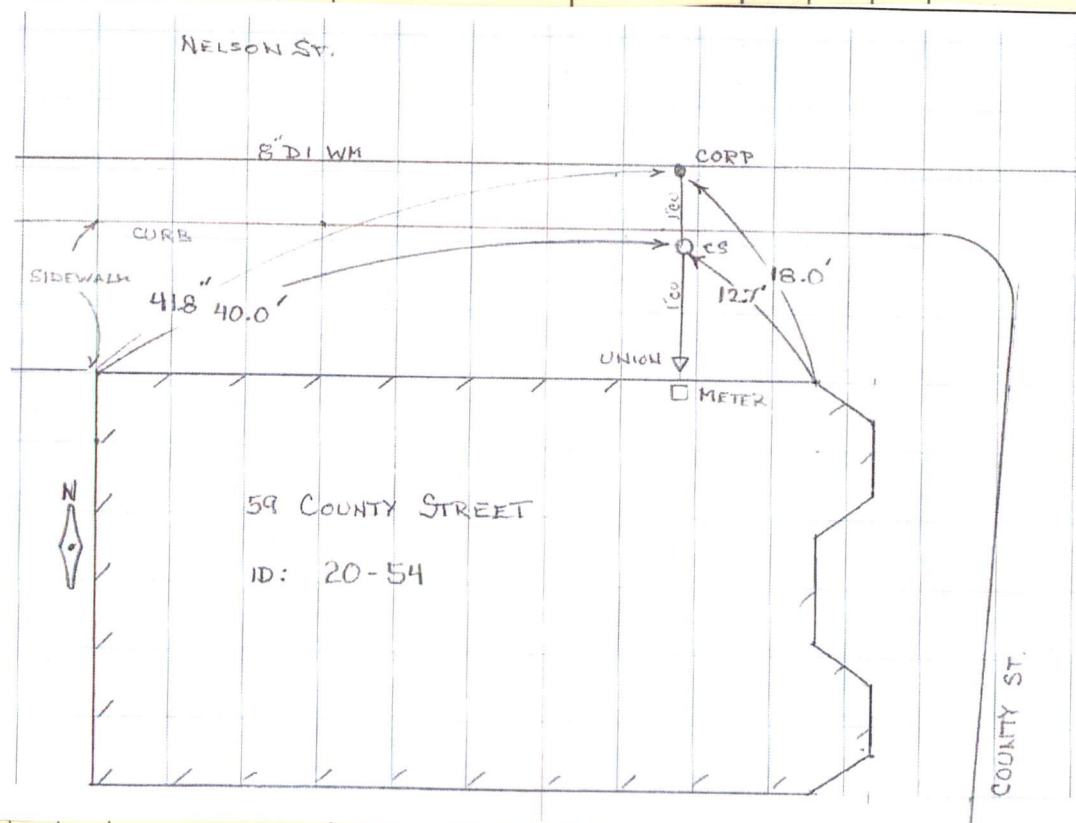 NELSON ST.
8" DI WM
CORP
1"CU
CURB
CS
SIDEWALK
41.8" 40.0'
12.7'
18.0'
1"CU
UNION
METER
N
59 COUNTY STREET
ID: 20-54
COUNTY ST.